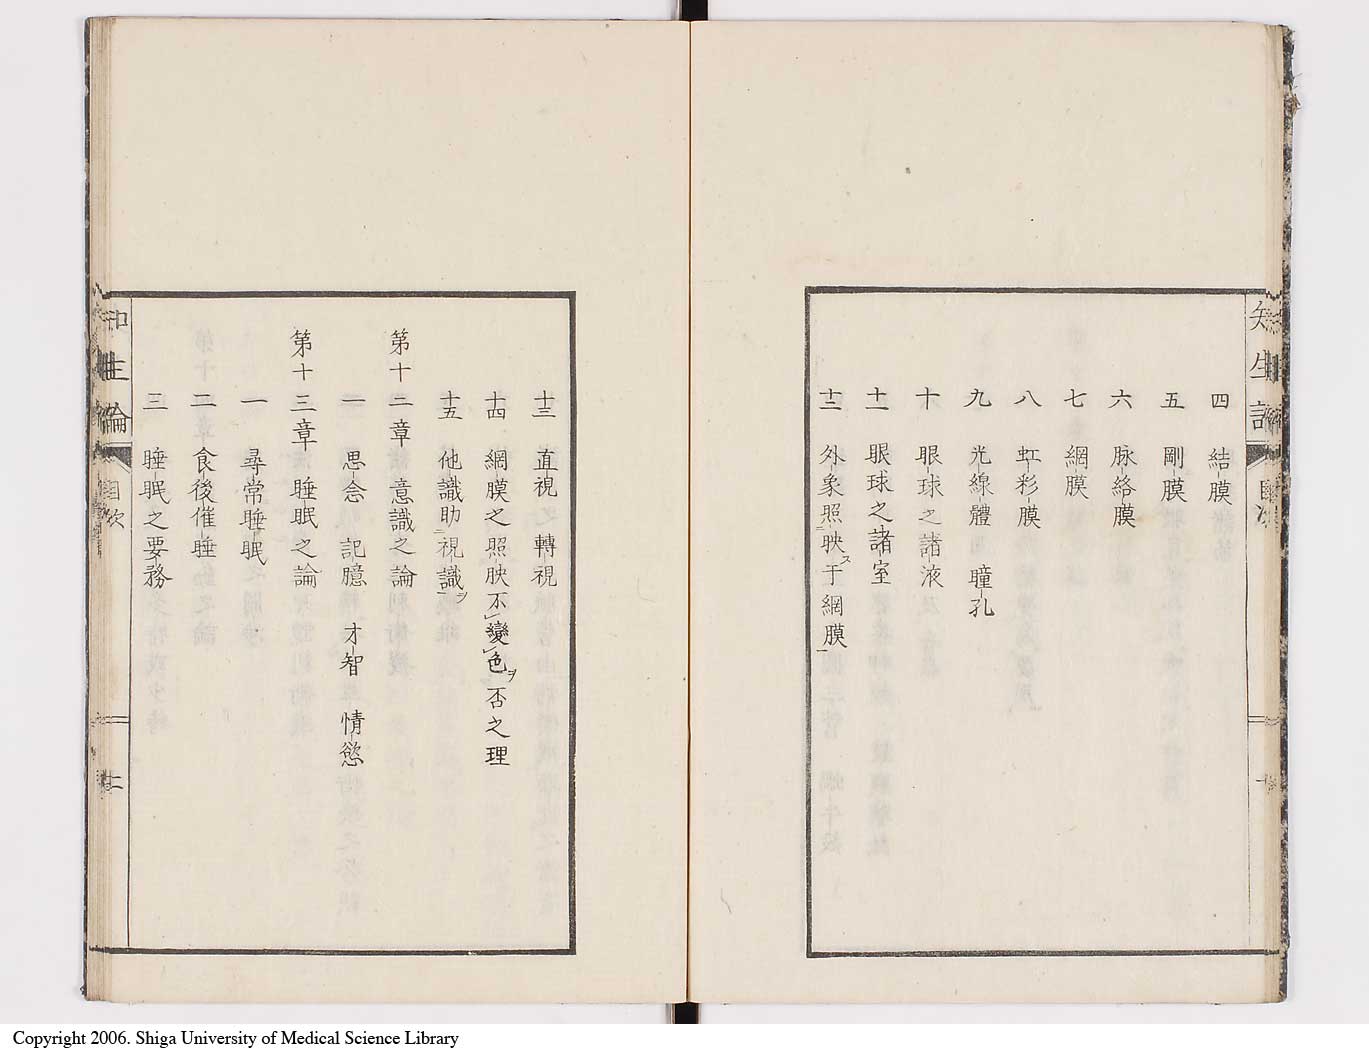 四　結膜
五　剛膜
六　脉絡膜
七　網膜
八　虹彩膜
九　光線體　瞳孔
十　眼球之諸液
十一　眼球之諸室
十二　外象照映于網膜
十三　直視之轉視
十四　網膜之照映不變色否之理
十五　他識助視識
第十二章　意識之論
一　思念　記臆　才智　情慾
第十三章　睡眠之論
一　尋常睡眠
二　食後催睡
三　睡眠之要務
知生論　目次
Copyright 2006. Shiga University of Medical Science Library